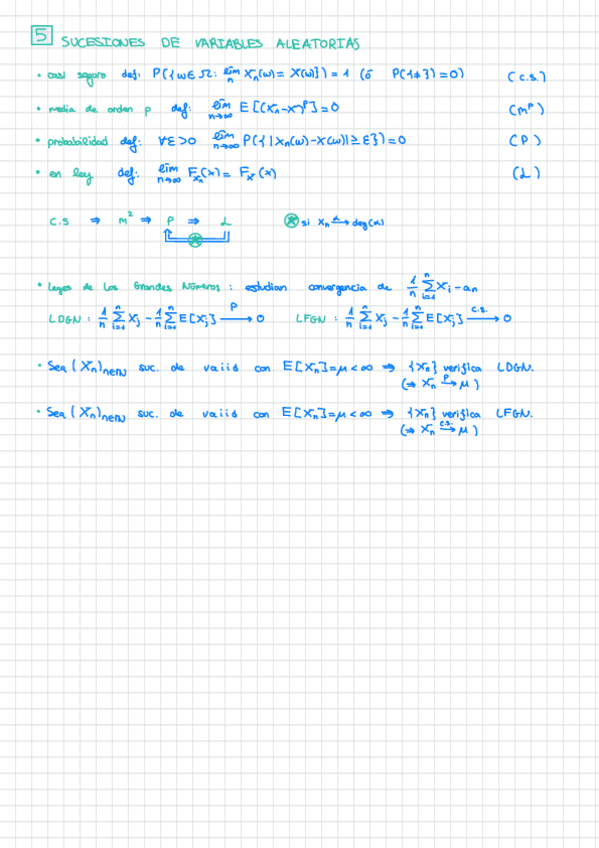 5 SUCESIONES DE VARIABLES ALEATORIAS
• casi seguro def: P({ω∈Ω: lim_n Xn(ω) = X(ω)}) = 1 (ó P({≠}) = 0) (c.s.)
• media de orden p def: lim_{n→∞} E[(Xn-X)^p] = 0 (m^p)
• probabilidad def: ∀ε>0 lim_{n→∞} P({|Xn(ω)-X(ω)| ≥ ε}) = 0 (P)
• en ley def: lim_{n→∞} F_{Xn}(x) = F_X(x) (L)
c.s ⇒ m² ⇒ P ⇒ L ⊛ si Xn →^L deg(α)
⊛
• Leyes de Los Grandes Números: estudian convergencia de 1/n Σ_{i=1}^n Xi - an
LDGN: 1/n Σ_{i=1}^n Xj - 1/n Σ_{i=1}^n E[Xj] →^P 0 LFGN: 1/n Σ_{i=1}^n Xj - 1/n Σ_{i=1}^n E[Xj] →^{c.s.} 0
• Sea (Xn)_{n∈ℕ} suc. de vaiid con E[Xn]=μ<∞ ⇒ {Xn} verifica LDGN.
(⇒ Xn →^P μ)
• Sea (Xn)_{n∈ℕ} suc. de vaiid con E[Xn]=μ<∞ ⇒ {Xn} verifica LFGN.
(⇒ Xn →^{c.s.} μ)